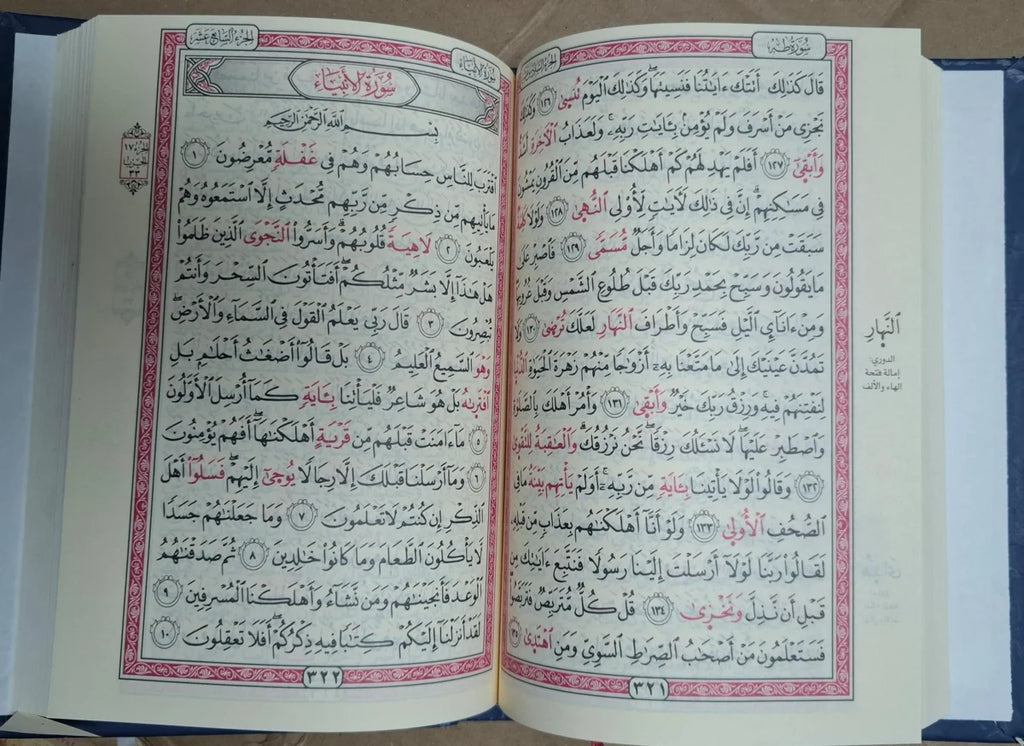 سُورَةُ طه
قَالَ كَذَٰلِكَ أَتَتْكَ ءَايَٰتُنَا فَنَسِينَهَا وَكَذَٰلِكَ ٱلْيَوْمَ تُنسَىٰ ١٢٦ وَكَذَٰلِكَ
نَجْزِى مَنْ أَسْرَفَ وَلَمْ يُؤْمِنۢ بِـَٔايَٰتِ رَبِّهِۦ وَلَعَذَابُ ٱلْأٓخِرَةِ أَشَدُّ
وَأَبْقَىٰ ١٢٧ أَفَلَمْ يَهْدِ لَهُمْ كَمْ أَهْلَكْنَا قَبْلَهُم مِّنَ ٱلْقُرُونِ يَمْشُونَ
فِى مَسَٰكِنِهِمْ إِنَّ فِى ذَٰلِكَ لَأٓيَٰتٍ لِّأُو۟لِى ٱلنُّهَىٰ ١٢٨ وَلَوْلَا كَلِمَةٌ
سَبَقَتْ مِن رَّبِّكَ لَكَانَ لِزَامًا وَأَجَلٌ مُّسَمًّى ١٢٩ فَٱصْبِرْ عَلَىٰ
مَا يَقُولُونَ وَسَبِّحْ بِحَمْدِ رَبِّكَ قَبْلَ طُلُوعِ ٱلشَّمْسِ وَقَبْلَ غُرُوبِهَا
وَمِنْ ءَانَآئِ ٱلَّيْلِ فَسَبِّحْ وَأَطْرَافَ ٱلنَّهَارِ لَعَلَّكَ تَرْضَىٰ ١٣٠ وَلَا
تَمُدَّنَّ عَيْنَيْكَ إِلَىٰ مَا مَتَّعْنَا بِهِۦٓ أَزْوَٰجًا مِّنْهُمْ زَهْرَةَ ٱلْحَيَوٰةِ ٱلدُّنْيَا
لِنَفْتِنَهُمْ فِيهِ وَرِزْقُ رَبِّكَ خَيْرٌ وَأَبْقَىٰ ١٣١ وَأْمُرْ أَهْلَكَ بِٱلصَّلَوٰةِ
وَٱصْطَبِرْ عَلَيْهَا لَا نَسْـَٔلُكَ رِزْقًا نَّحْنُ نَرْزُقُكَ وَٱلْعَٰقِبَةُ لِلتَّقْوَىٰ
١٣٢ وَقَالُوا۟ لَوْلَا يَأْتِينَا بِـَٔايَةٍ مِّن رَّبِّهِۦٓ أَوَلَمْ يَأْتِهِم بَيِّنَةُ مَا فِى
ٱلصُّحُفِ ٱلْأُولَىٰ ١٣٣ وَلَوْ أَنَّآ أَهْلَكْنَٰهُم بِعَذَابٍ مِّن قَبْلِهِۦ
لَقَالُوا۟ رَبَّنَا لَوْلَآ أَرْسَلْتَ إِلَيْنَا رَسُولًا فَنَتَّبِعَ ءَايَٰتِكَ مِن
قَبْلِ أَن نَّذِلَّ وَنَخْزَىٰ ١٣٤ قُلْ كُلٌّ مُّتَرَبِّصٌ فَتَرَبَّصُوا۟
فَسَتَعْلَمُونَ مَنْ أَصْحَٰبُ ٱلصِّرَٰطِ ٱلسَّوِىِّ وَمَنِ ٱهْتَدَىٰ ١٣٥
٣٢١
ٱلنَّهَارِ
الدوري:
إمالة فتحة
الهاء والألف
الجزء السابع عشر
سُورَةُ الأنبياء
سُورَةُ الأَنبِيَاءِ
بِسْمِ ٱللَّهِ ٱلرَّحْمَٰنِ ٱلرَّحِيمِ
ٱقْتَرَبَ لِلنَّاسِ حِسَابُهُمْ وَهُمْ فِى غَفْلَةٍ مُّعْرِضُونَ ١
مَا يَأْتِيهِم مِّن ذِكْرٍ مِّن رَّبِّهِم مُّحْدَثٍ إِلَّا ٱسْتَمَعُوهُ وَهُمْ
يَلْعَبُونَ ٢ لَاهِيَةً قُلُوبُهُمْ وَأَسَرُّوا۟ ٱلنَّجْوَى ٱلَّذِينَ ظَلَمُوا۟
هَلْ هَٰذَآ إِلَّا بَشَرٌ مِّثْلُكُمْ أَفَتَأْتُونَ ٱلسِّحْرَ وَأَنتُمْ
تُبْصِرُونَ ٣ قَالَ رَبِّى يَعْلَمُ ٱلْقَوْلَ فِى ٱلسَّمَآءِ وَٱلْأَرْضِ
وَهْوَ ٱلسَّمِيعُ ٱلْعَلِيمُ ٤ بَلْ قَالُوٓا۟ أَضْغَٰثُ أَحْلَٰمٍ بَلِ
ٱفْتَرَىٰهُ بَلْ هُوَ شَاعِرٌ فَلْيَأْتِنَا بِـَٔايَةٍ كَمَآ أُرْسِلَ ٱلْأَوَّلُونَ
٥ مَآ ءَامَنَتْ قَبْلَهُم مِّن قَرْيَةٍ أَهْلَكْنَٰهَآ أَفَهُمْ يُؤْمِنُونَ
٦ وَمَآ أَرْسَلْنَا قَبْلَكَ إِلَّا رِجَالًا يُوحَىٰٓ إِلَيْهِمْ فَسَلُوٓا۟ أَهْلَ
ٱلذِّكْرِ إِن كُنتُمْ لَا تَعْلَمُونَ ٧ وَمَا جَعَلْنَٰهُمْ جَسَدًا
لَّا يَأْكُلُونَ ٱلطَّعَامَ وَمَا كَانُوا۟ خَٰلِدِينَ ٨ ثُمَّ صَدَقْنَٰهُمُ
ٱلْوَعْدَ فَأَنجَيْنَٰهُمْ وَمَن نَّشَآءُ وَأَهْلَكْنَا ٱلْمُسْرِفِينَ ٩
لَقَدْ أَنزَلْنَآ إِلَيْكُمْ كِتَٰبًا فِيهِ ذِكْرُكُمْ أَفَلَا تَعْقِلُونَ ١٠
٣٢٢